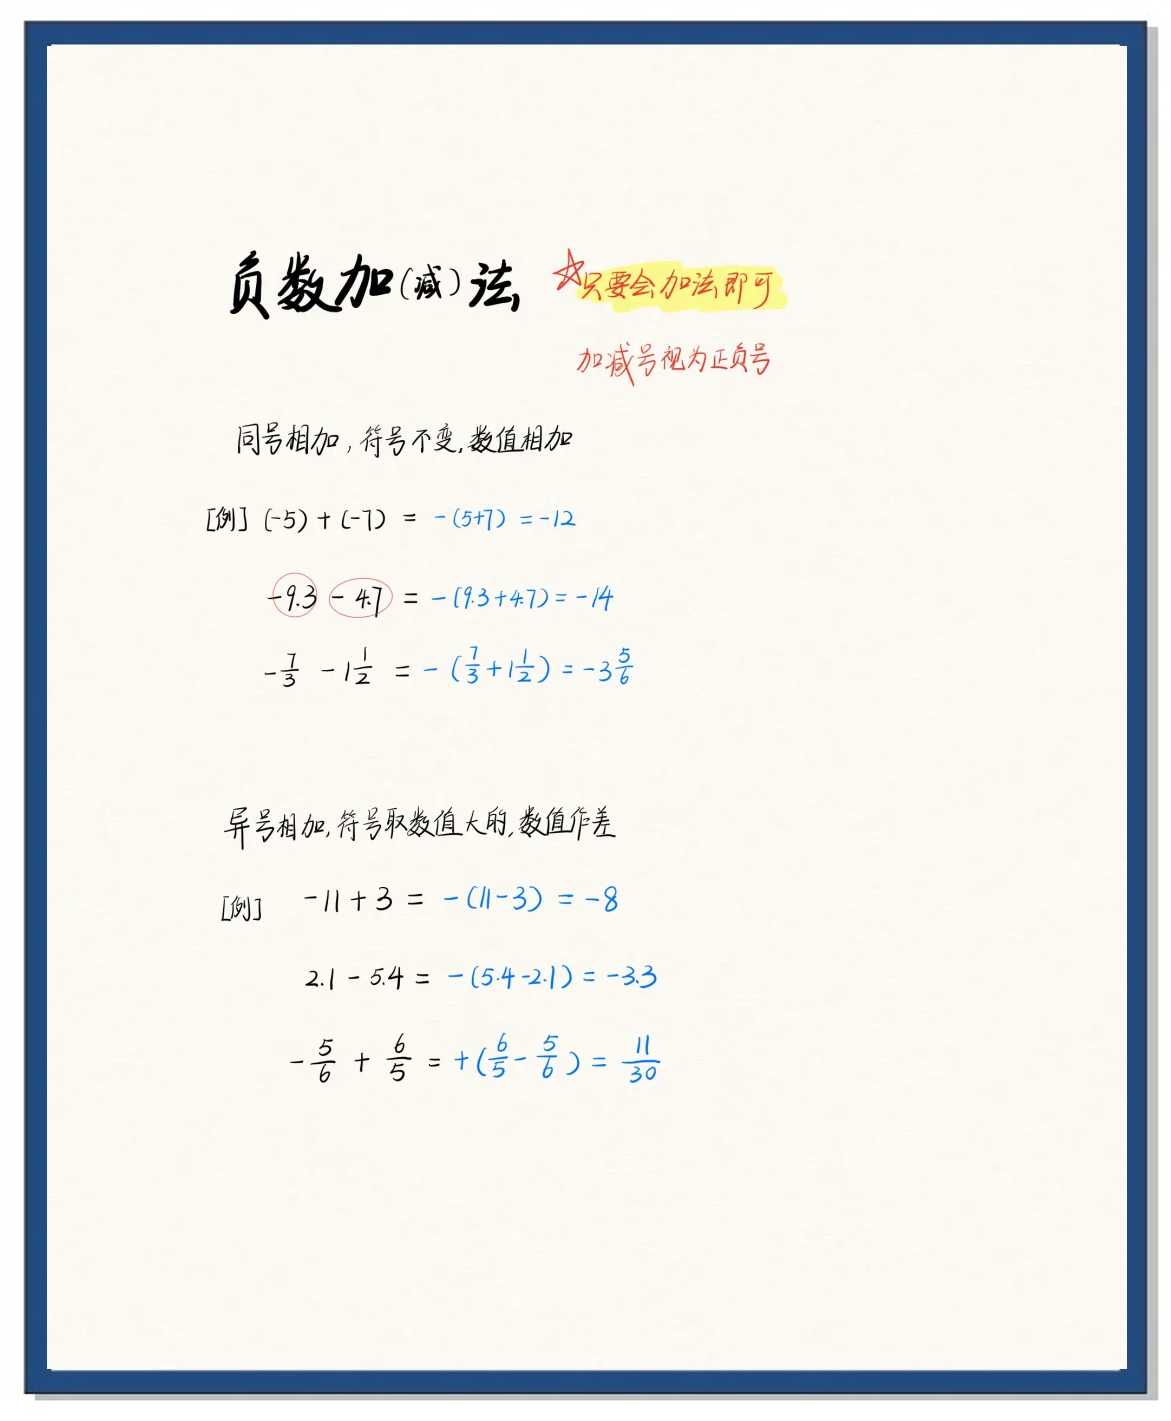 负数加(减)法 ☆只要会加法即可
加减号视为正负号
同号相加,符号不变,数值相加
[例] (-5)+(-7) = -(5+7) = -12
-9.3 - 4.7 = -(9.3+4.7) = -14
-7/3 - 1 1/2 = -(7/3 + 1 1/2) = -3 5/6
异号相加,符号取数值大的,数值作差
[例] -11+3 = -(11-3) = -8
2.1 - 5.4 = -(5.4-2.1) = -3.3
-5/6 + 6/5 = +(6/5 - 5/6) = 11/30